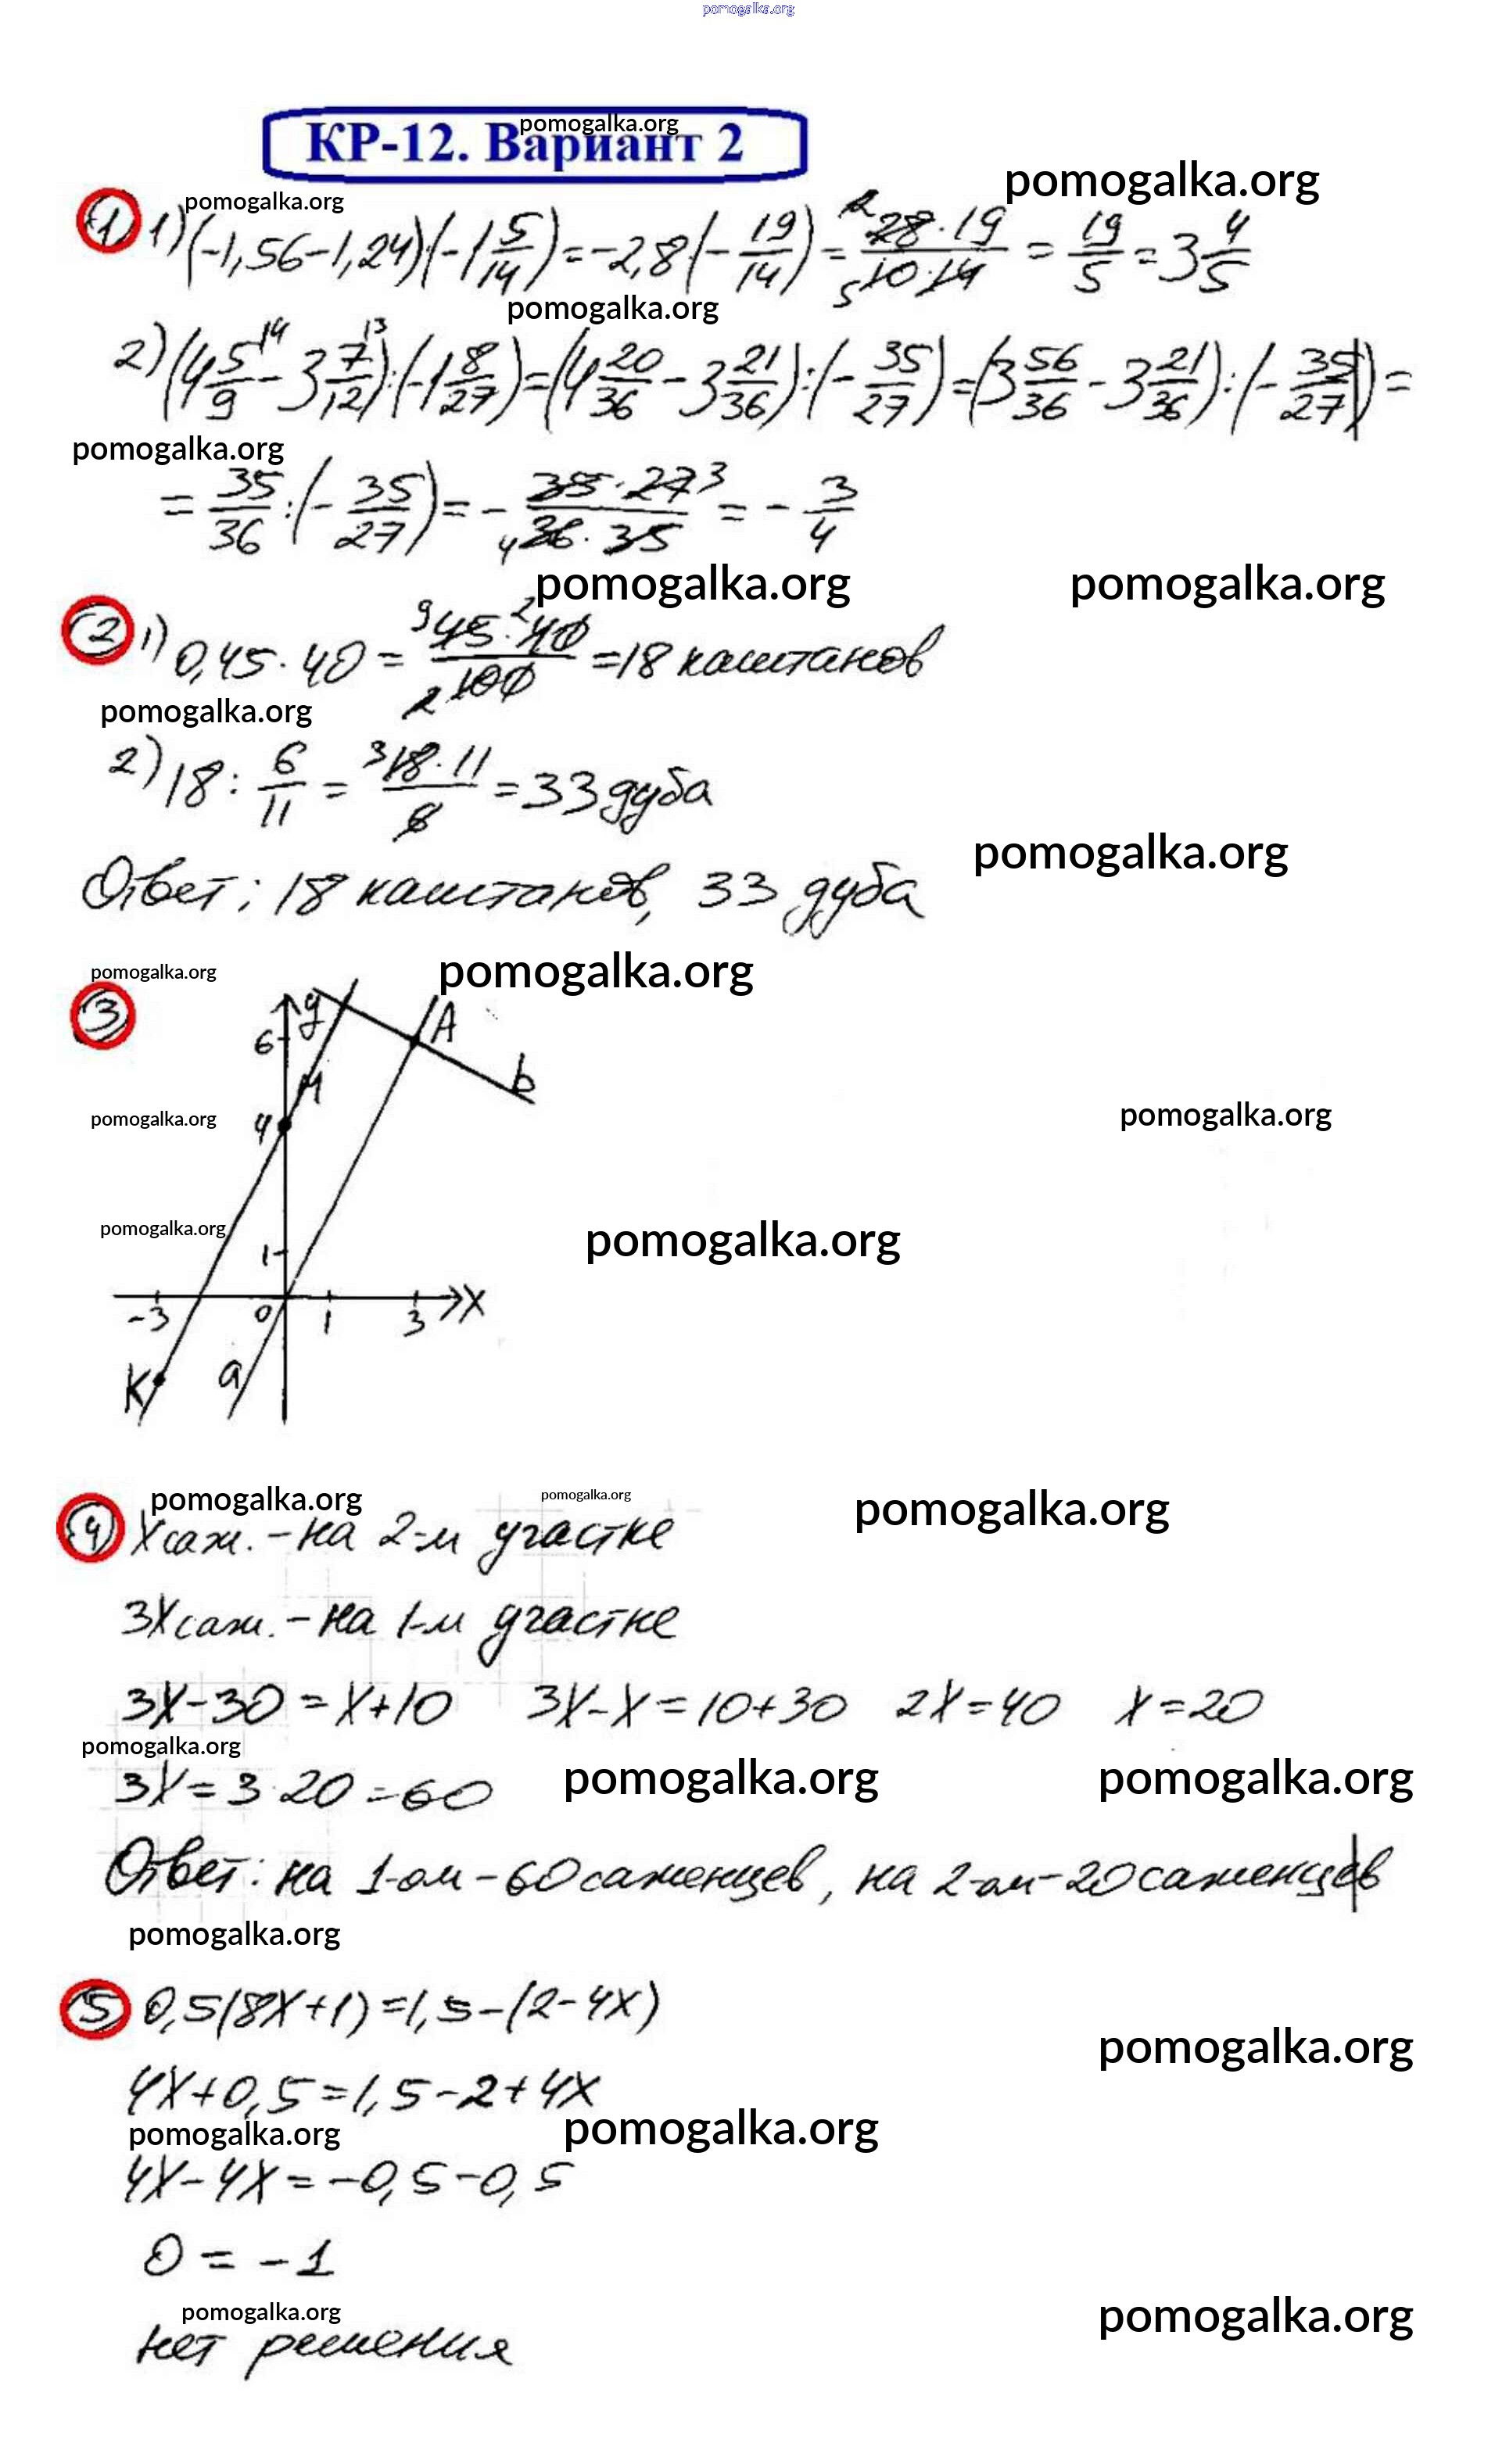 pomogalka.org
КР-12. Вариант 2
pomogalka.org
pomogalka.org
pomogalka.org
1) 1) (-1,56-1,24)·(-1 5/14) = -2,8·(-19/14) = 28·19/10·14 = 19/5 = 3 4/5
pomogalka.org
2) (4 5/9 - 3 7/12) : (-1 8/27) = (4 20/36 - 3 21/36) : (-35/27) = (3 56/36 - 3 21/36) : (-35/27) =
pomogalka.org
= 35/36 : (-35/27) = - 35·27/36·35 = - 3/4
pomogalka.org pomogalka.org
2) 1) 0,45·40 = 45·40/100 = 18 каштанов
pomogalka.org
2) 18 : 6/11 = 18·11/6 = 33 дуба
pomogalka.org
Ответ: 18 каштанов, 33 дуба
pomogalka.org pomogalka.org
3)
y
A
6
M
b
4
pomogalka.org pomogalka.org
pomogalka.org pomogalka.org
1
-3 0 1 3 X
K a
pomogalka.org pomogalka.org pomogalka.org
4) X саж. - на 2-м участке
3X саж. - на 1-м участке
3X-30=X+10 3X-X=10+30 2X=40 X=20
pomogalka.org
3X=3·20=60
pomogalka.org pomogalka.org
Ответ: на 1-ом-60 саженцев, на 2-ом-20 саженцев
pomogalka.org
5) 0,5(8X+1)=1,5-(2-4X)
pomogalka.org
4X+0,5=1,5-2+4X
pomogalka.org pomogalka.org
4X-4X=-0,5-0,5
0 = -1
pomogalka.org pomogalka.org
нет решения